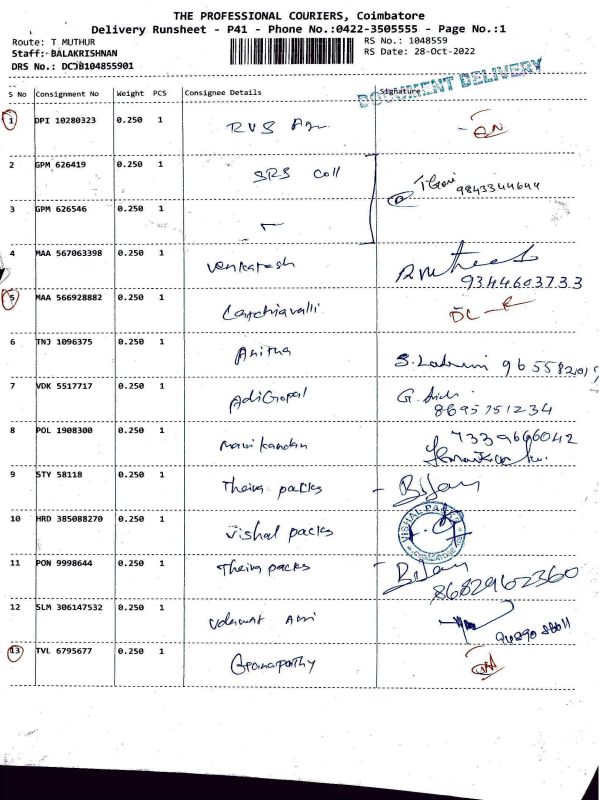 THE PROFESSIONAL COURIERS, Coimbatore
Delivery Runsheet - P41 - Phone No.:0422-3505555 - Page No.:1
Route: T MUTHUR
RS No.: 1048559
Staff: BALAKRISHNAN
RS Date: 28-Oct-2022
DRS No.: DCJB104855901
DOCUMENT DELIVERY
S No Consignment No Weight PCS Consignee Details Signature
1 DPI 10280323 0.250 1 RVS
2 GPM 626419 0.250 1 SRS Coll
9843344644
3 GPM 626546 0.250 1
4 MAA 567063398 0.250 1 Venkatesh
9344603733
5 MAA 566928882 0.250 1
DL
6 TNJ 1096375 0.250 1 Anitha
7 VDK 5517717 0.250 1 AdiGopal
8695751234
8 POL 1908300 0.250 1 Manikandan
7339666042
9 STY 58118 0.250 1 packs
10 HRD 385088270 0.250 1 Vishal packs
VISHAL
COIMBATORE
11 PON 9998644 0.250 1 packs
12 SLM 306147532 0.250 1
13 TVL 6795677 0.250 1